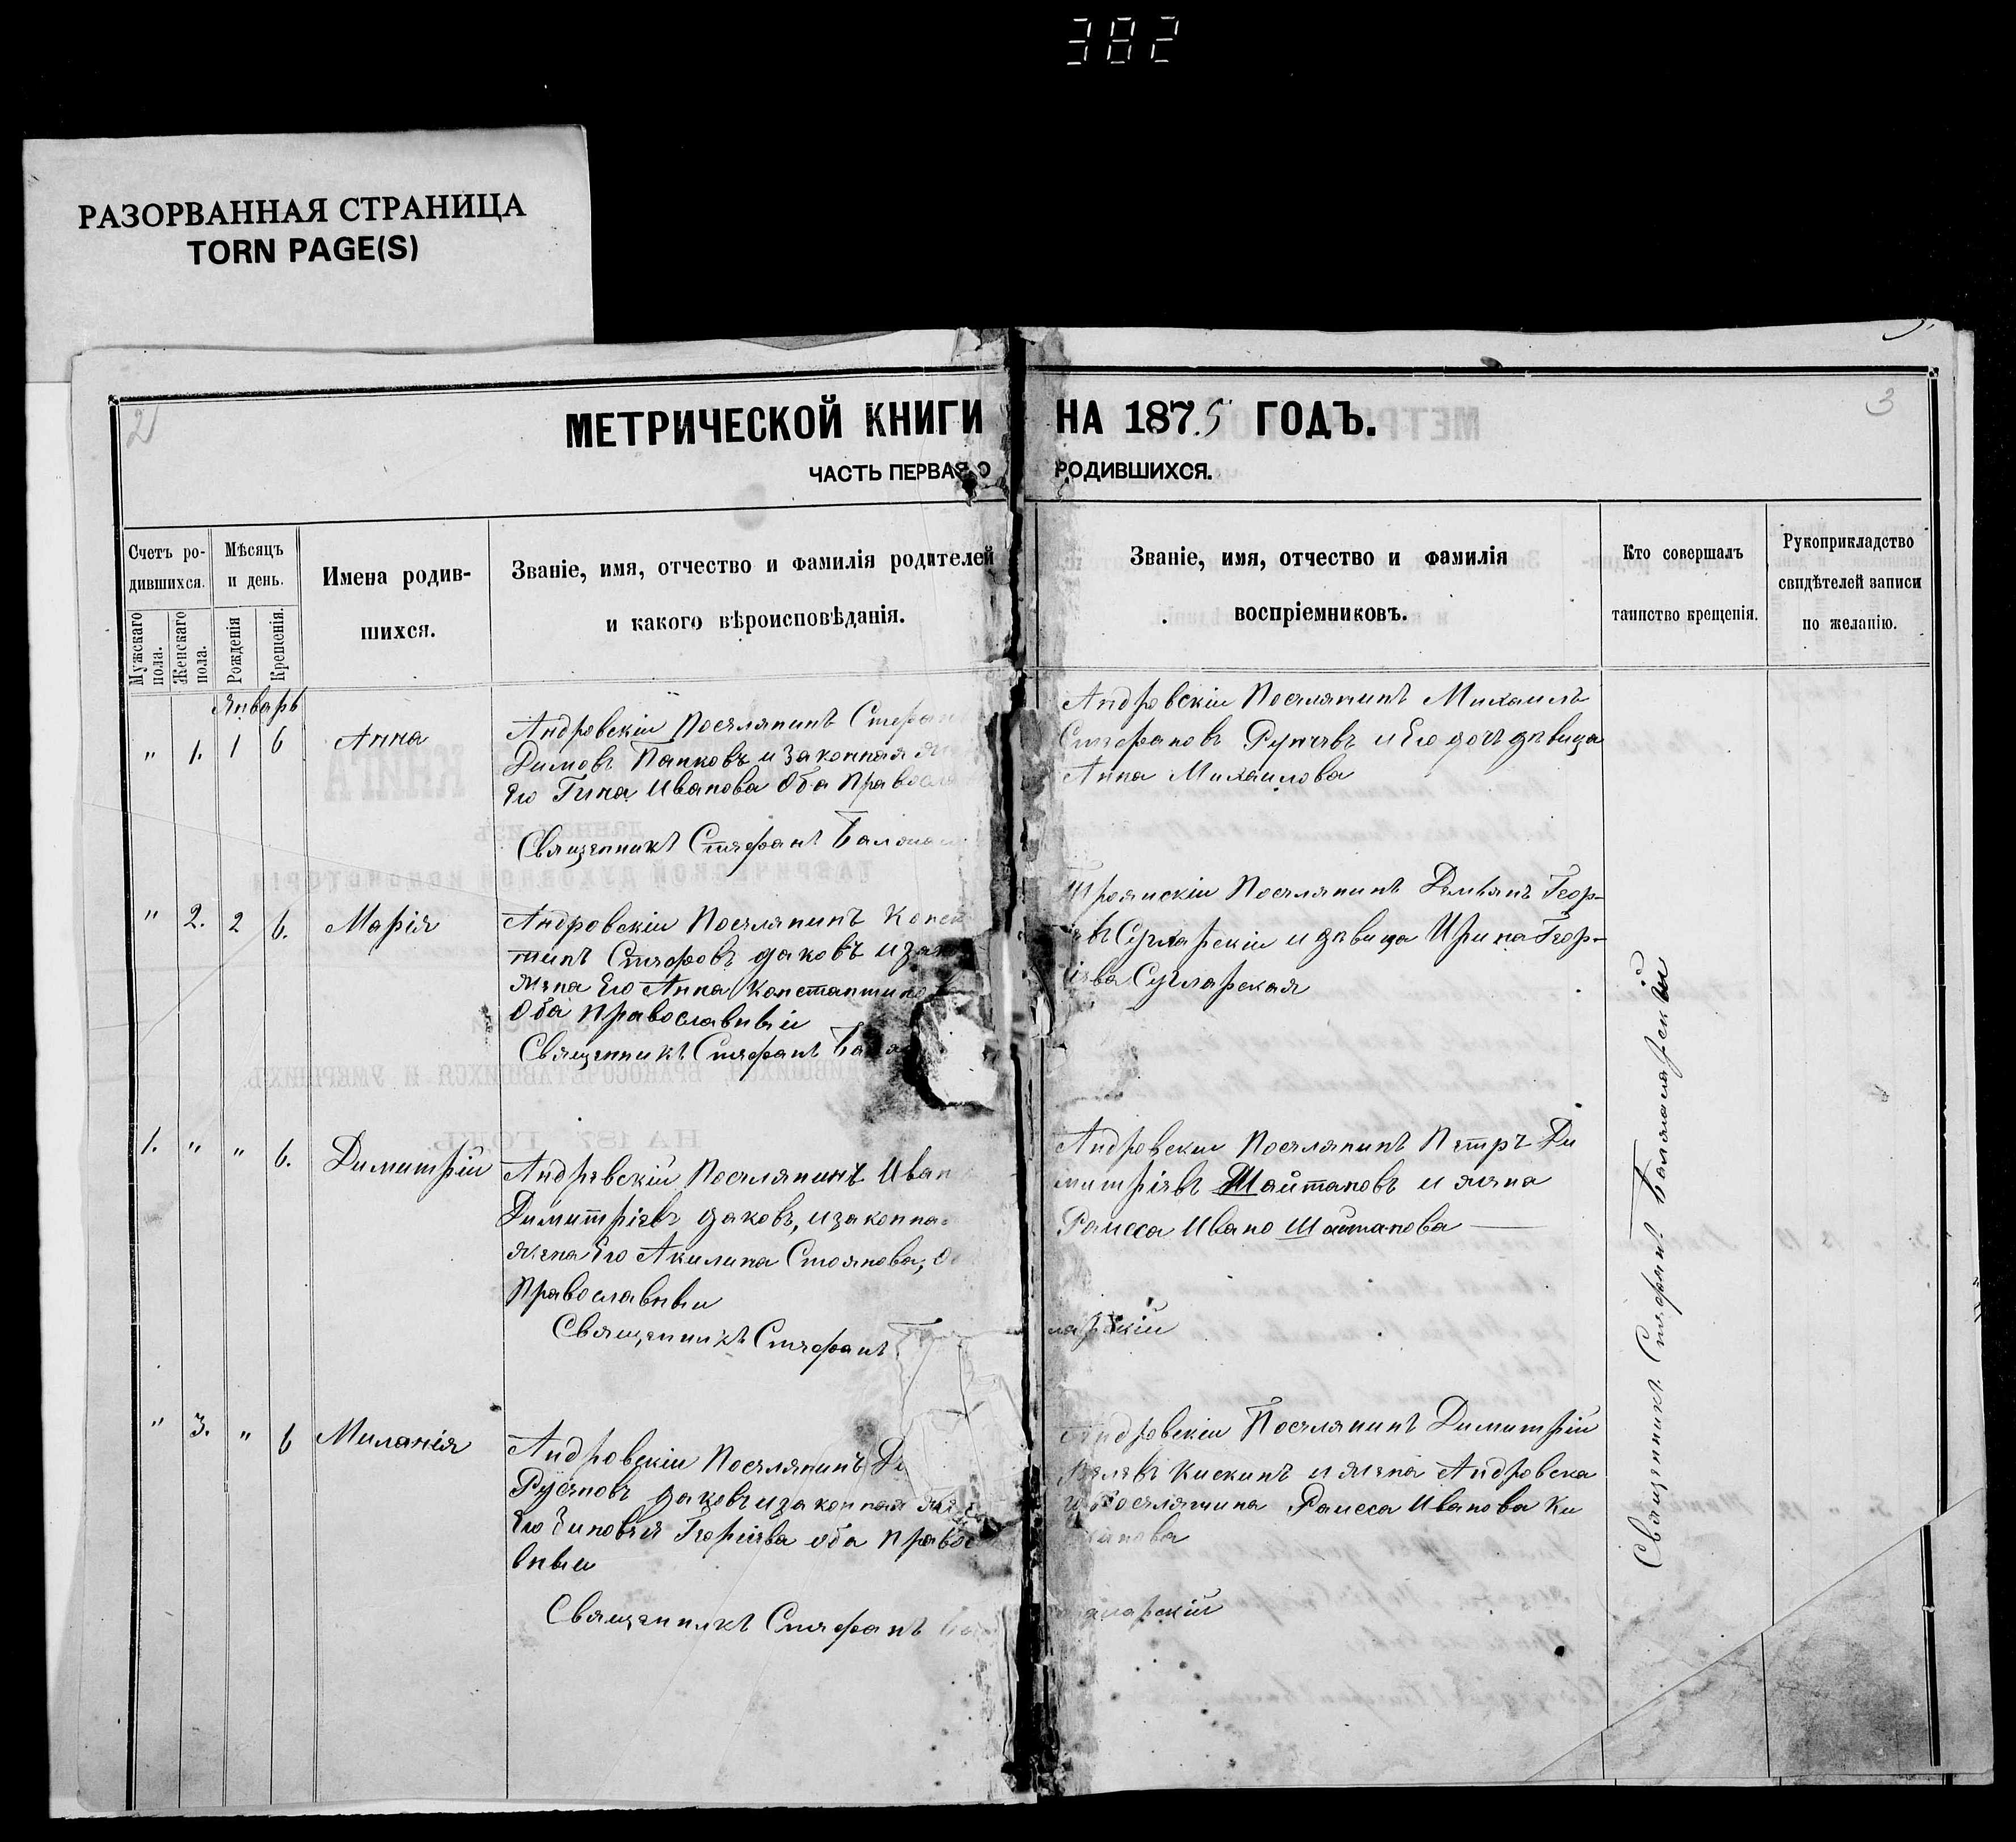 382
РАЗОРВАННАЯ СТРАНИЦА
TORN PAGE(S)
2
3
МЕТРИЧЕСКОЙ КНИГИ НА 1875 ГОДЪ.
ЧАСТЬ ПЕРВАЯ О РОДИВШИХСЯ.
Счетъ ро-
дившихся.
Мужскаго пола.
Женскаго пола.
Мѣсяцъ
и день.
Рожденія
Крещенія.
Имена родив-
шихся.
Званіе, имя, отчество и фамилія родителей
и какого вѣроисповѣданія.
Званіе, имя, отчество и фамилія
воспріемниковъ.
Кто совершалъ
таинство крещенія.
Рукоприкладство
свидѣтелей записи
по желанію.
Январь
" 1. 1 6 Анна
Андровскіи Поселянинъ Стефан
Димовъ Папковъ и законная
Его Гина Иванова Оба
Священникъ Стефанъ
Андровскіи Поселянинъ Михаилъ
Стефановъ и Его дочь дѣвица
Анна Михаилова
" 2. 2 6. Марія
Андровскіи Поселянинъ
тинъ Стефовъ даковъ и
жена Его Анна
Оба Православныи
Священникъ Стефанъ
Поселянинъ Демьянъ Геор-
и дѣвица Ирина Геор-
1. " " 6. Димитрій
Андревскій Поселянинъ Иван
Димитріевъ даковъ, и законна
жена Его Акилина Стоянова,
Православныи
Священникъ Стефанъ
Андровскіи Поселянинъ Петръ Ди
митріевъ Шайтановъ и жена
Раисса Ивано Шайтанова
" 3. " 6 Миланія
Андровскіи Поселянинъ
Русеновъ даковъ и законная
Его Зиновья Георгіева оба
вныи
Священникъ Стефанъ
Андровскіи Поселянинъ Димитрій
Кискинъ и жена Андровска
Поселянина Раисса Иванова Ки
Священникъ Стефанъ